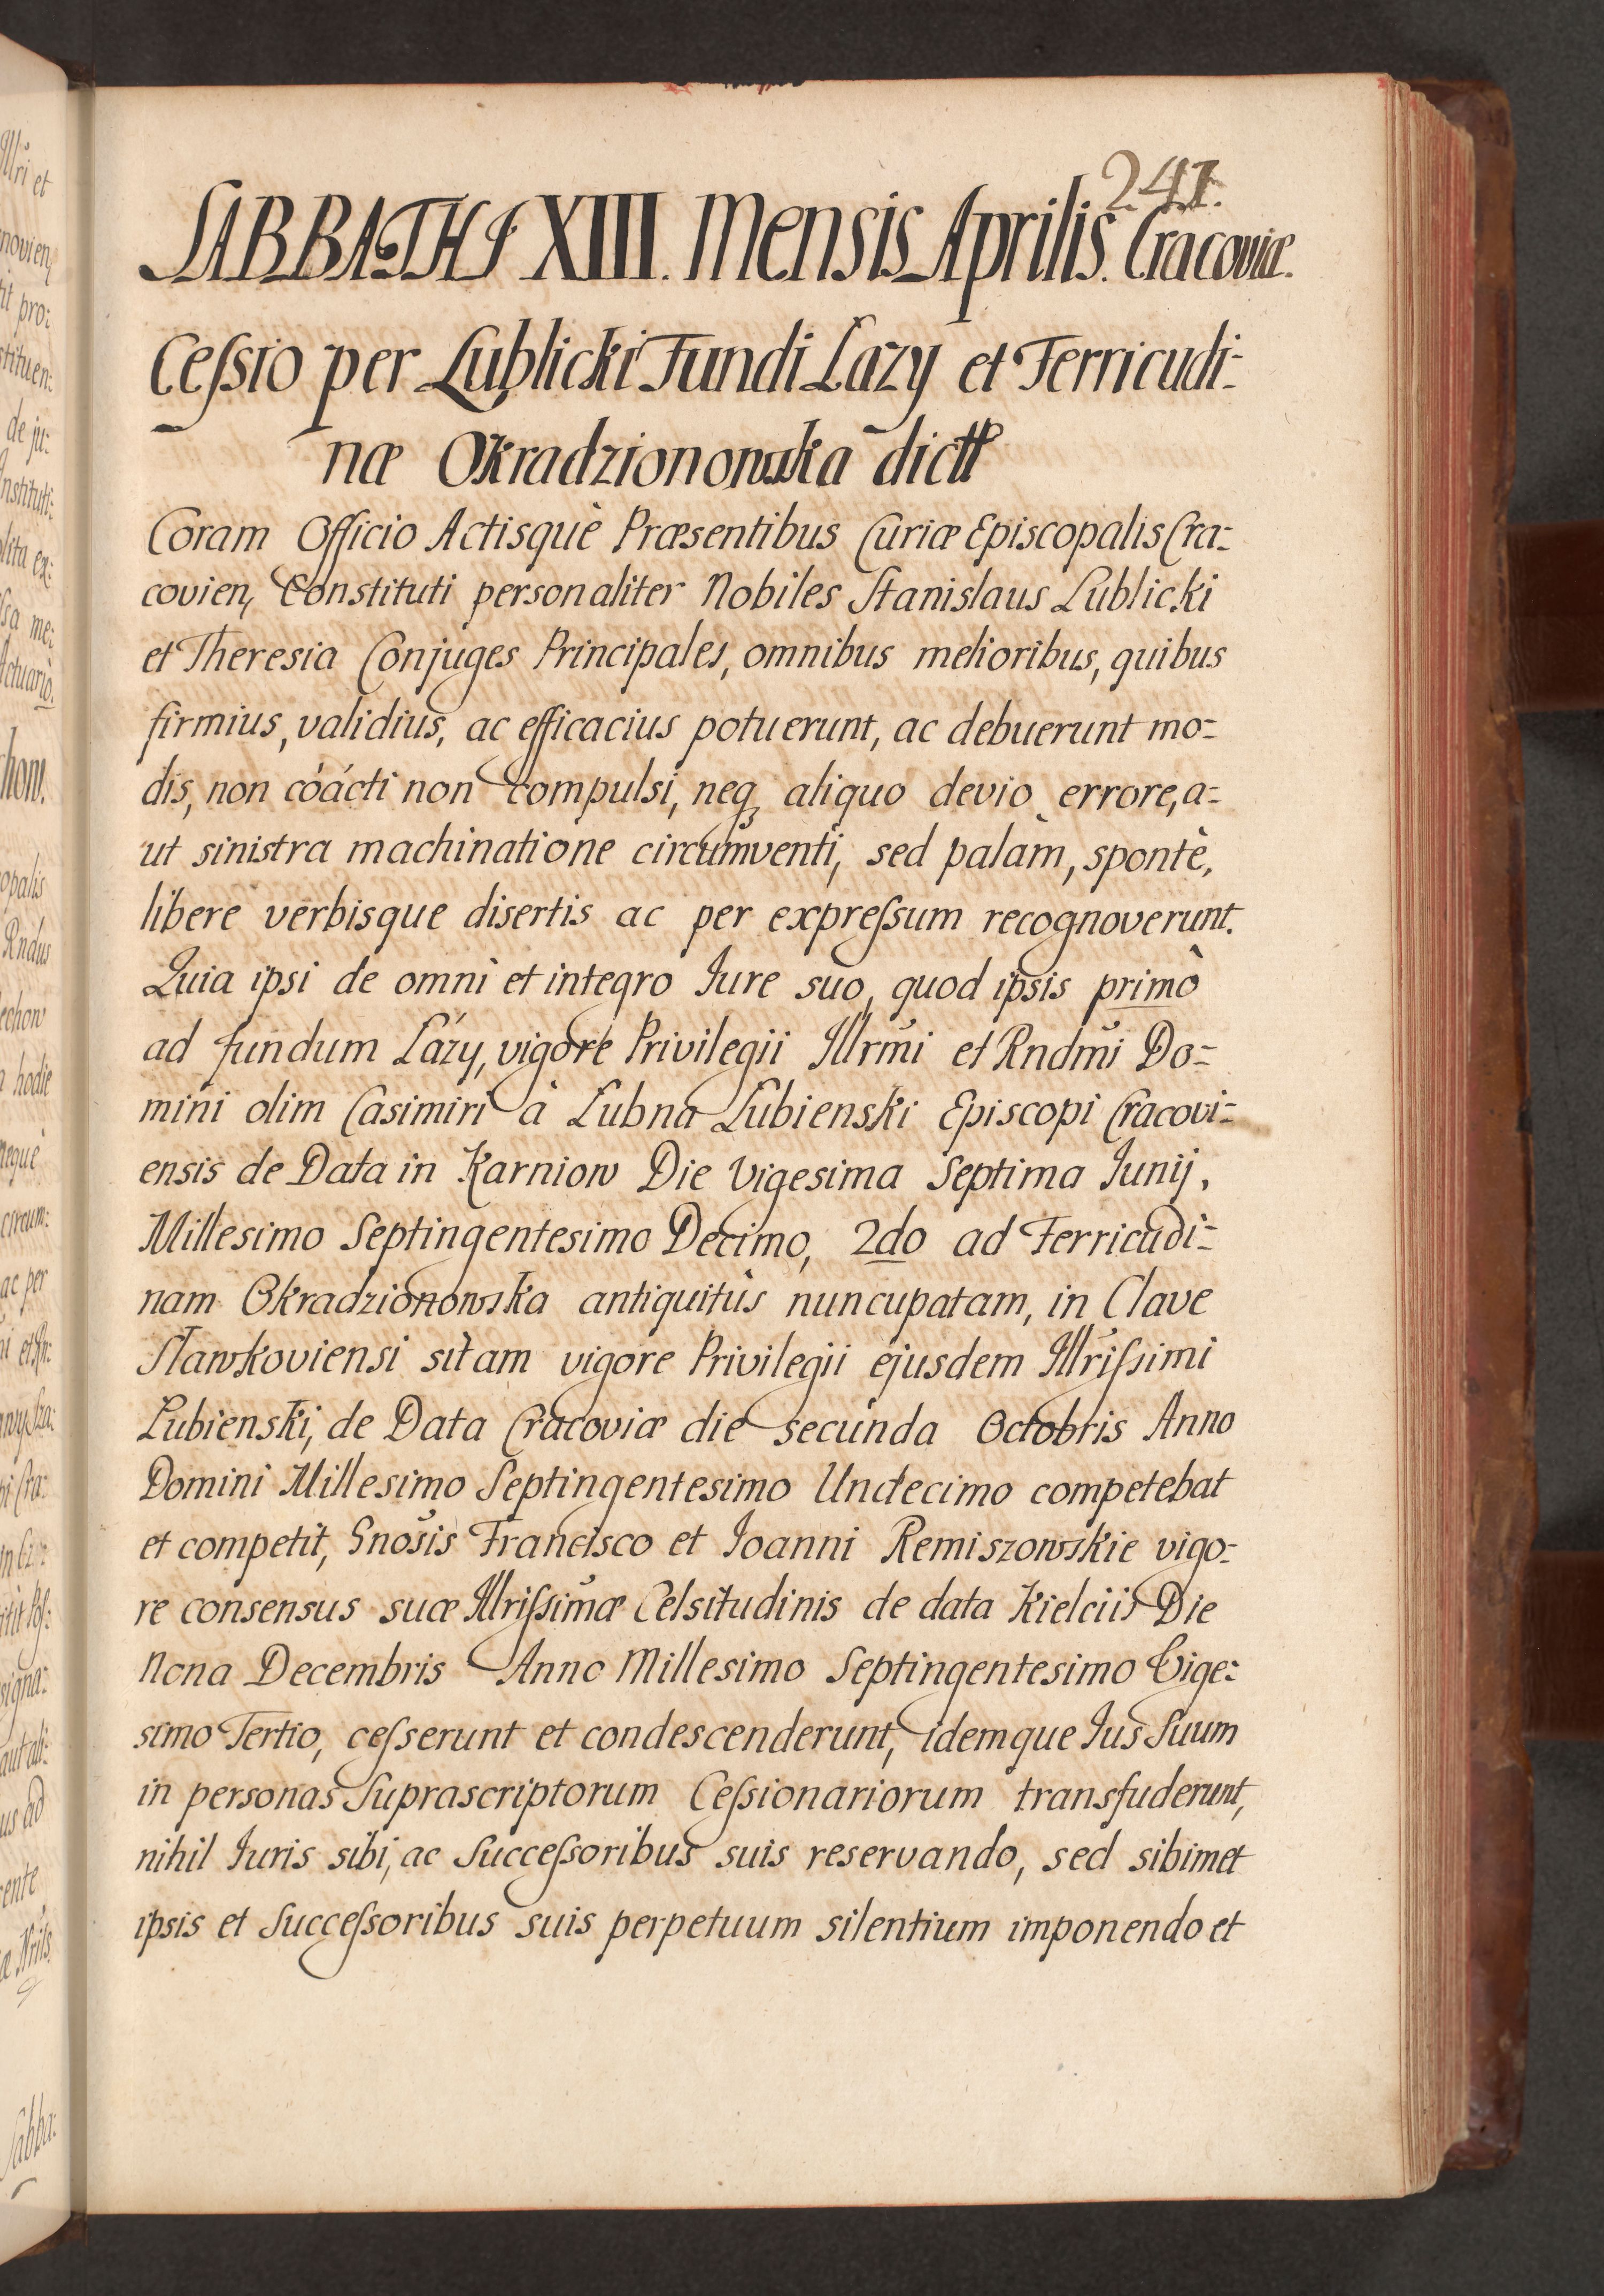 241.
SABBATHO XIII. Mensis Aprilis. Cracoviæ.
Ceſsio per Lublicki Fundi Lazy et Ferricudi-
næ Okradzionowska dictæ
Coram Officio Actisquè Præsentibus Curiæ Episcopalis Cra-
covien, Constituti personaliter Nobiles Stanislaus Lublicki
et Theresia Conjuges Principales, omnibus melioribus, quibus
firmius, validius, ac efficacius potuerunt, ac debuerunt mo-
dis, non cóácti non compulsi, neq aliquo devio errore, a-
ut sinistra machinatione circumventi, sed palàm, spontè,
libere verbisque disertis ac per expreſsum recognoverunt.
Quia ipsi de omni et integro Iure suo, quod ipsis primò
ad fundum Lázy, vigore Privilegii Illrmi et Rndmi Do-
mini olim Casimiri à Lubna Lubienski Episcopi Cracovi-
ensis de Data in Karniow Die Vigesima Septima Iunij.
Millesimo Septingentesimo Decimo, 2do ad Ferricudi-
nam Okradzionowska antiquitùs nuncupatam, in Clave
Slawkoviensi sitam vigore Privilegii ejusdem Illriſsimi
Lubienski, de Data Cracoviæ die secunda Octobris Anno
Domini Millesimo Septingentesimo Undecimo competebat
et competit, Gnosis Francisco et Ioanni Remiszowskie vigo-
re consensus suæ Illriſsimæ Celsitudinis de data Kielciis Die
Nona Decembris Anno Millesimo Septingentesimo Vige-
simo Tertio, ceſserunt et condescenderunt, idemque Ius Suum
in personas Suprascriptorum Ceſsionariorum transfuderunt,
nihil Iuris sibi, ac Succeſsoribus suis reservando, sed sibimet
ipsis et Succeſsoribus suis perpetuum silentium imponendo et